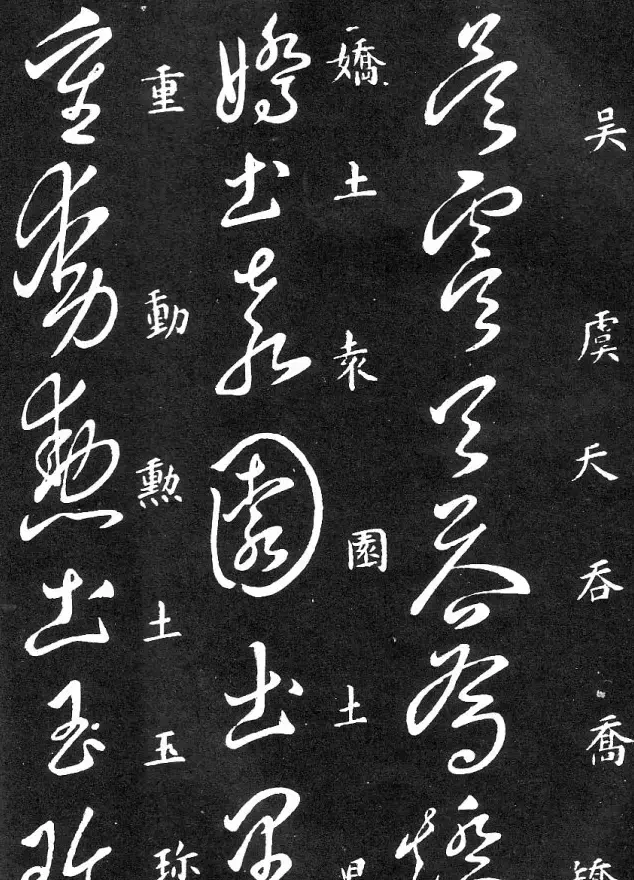 吴 虞 天 吞 喬
嬌 土 袁 園 土
重 動 勲 土 玉 珎